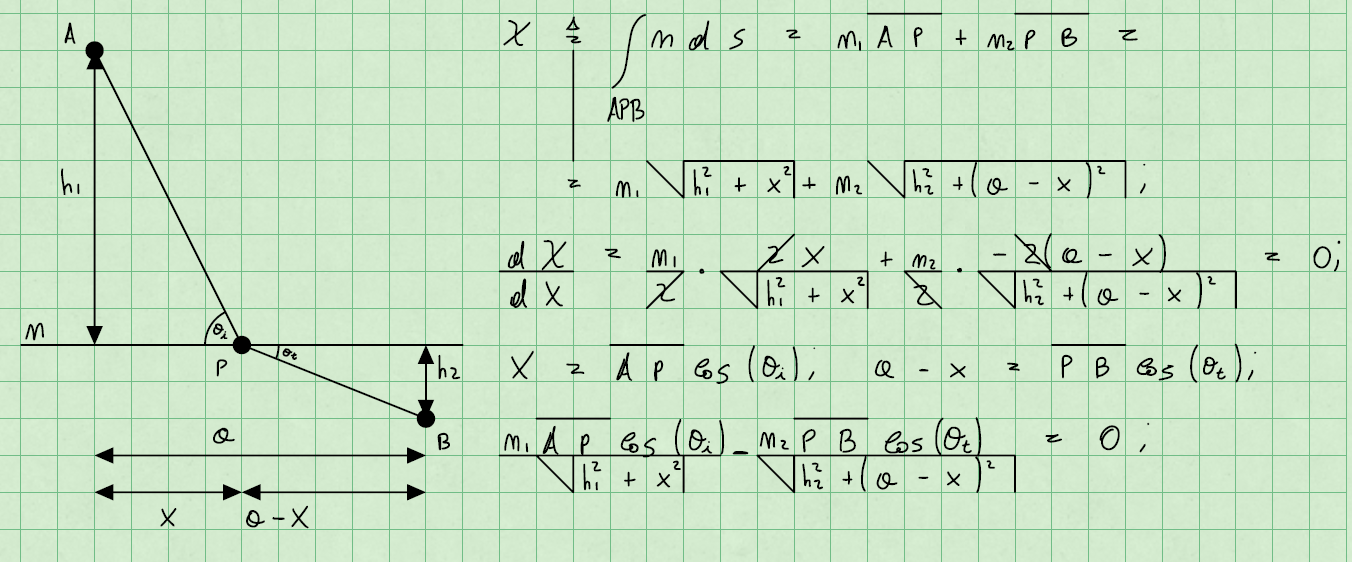 A
h₁
n
θᵢ
θₜ
P
h₂
B
a
x
a - x
χ ≜ ∫_APB n d s = n₁ \overline{A P} + n₂ \overline{P B} =
= n₁ √(h₁² + x²) + n₂ √(h₂² + (a - x)²) ;
d χ / d x = n₁ / 2 · 2 x / √(h₁² + x²) + n₂ / 2 · - 2 (a - x) / √(h₂² + (a - x)²) = 0 ;
x = \overline{A P} cos (θᵢ) ; a - x = \overline{P B} cos (θₜ) ;
n₁ \overline{A P} cos (θᵢ) / √(h₁² + x²) - n₂ \overline{P B} cos (θₜ) / √(h₂² + (a - x)²) = 0 ;